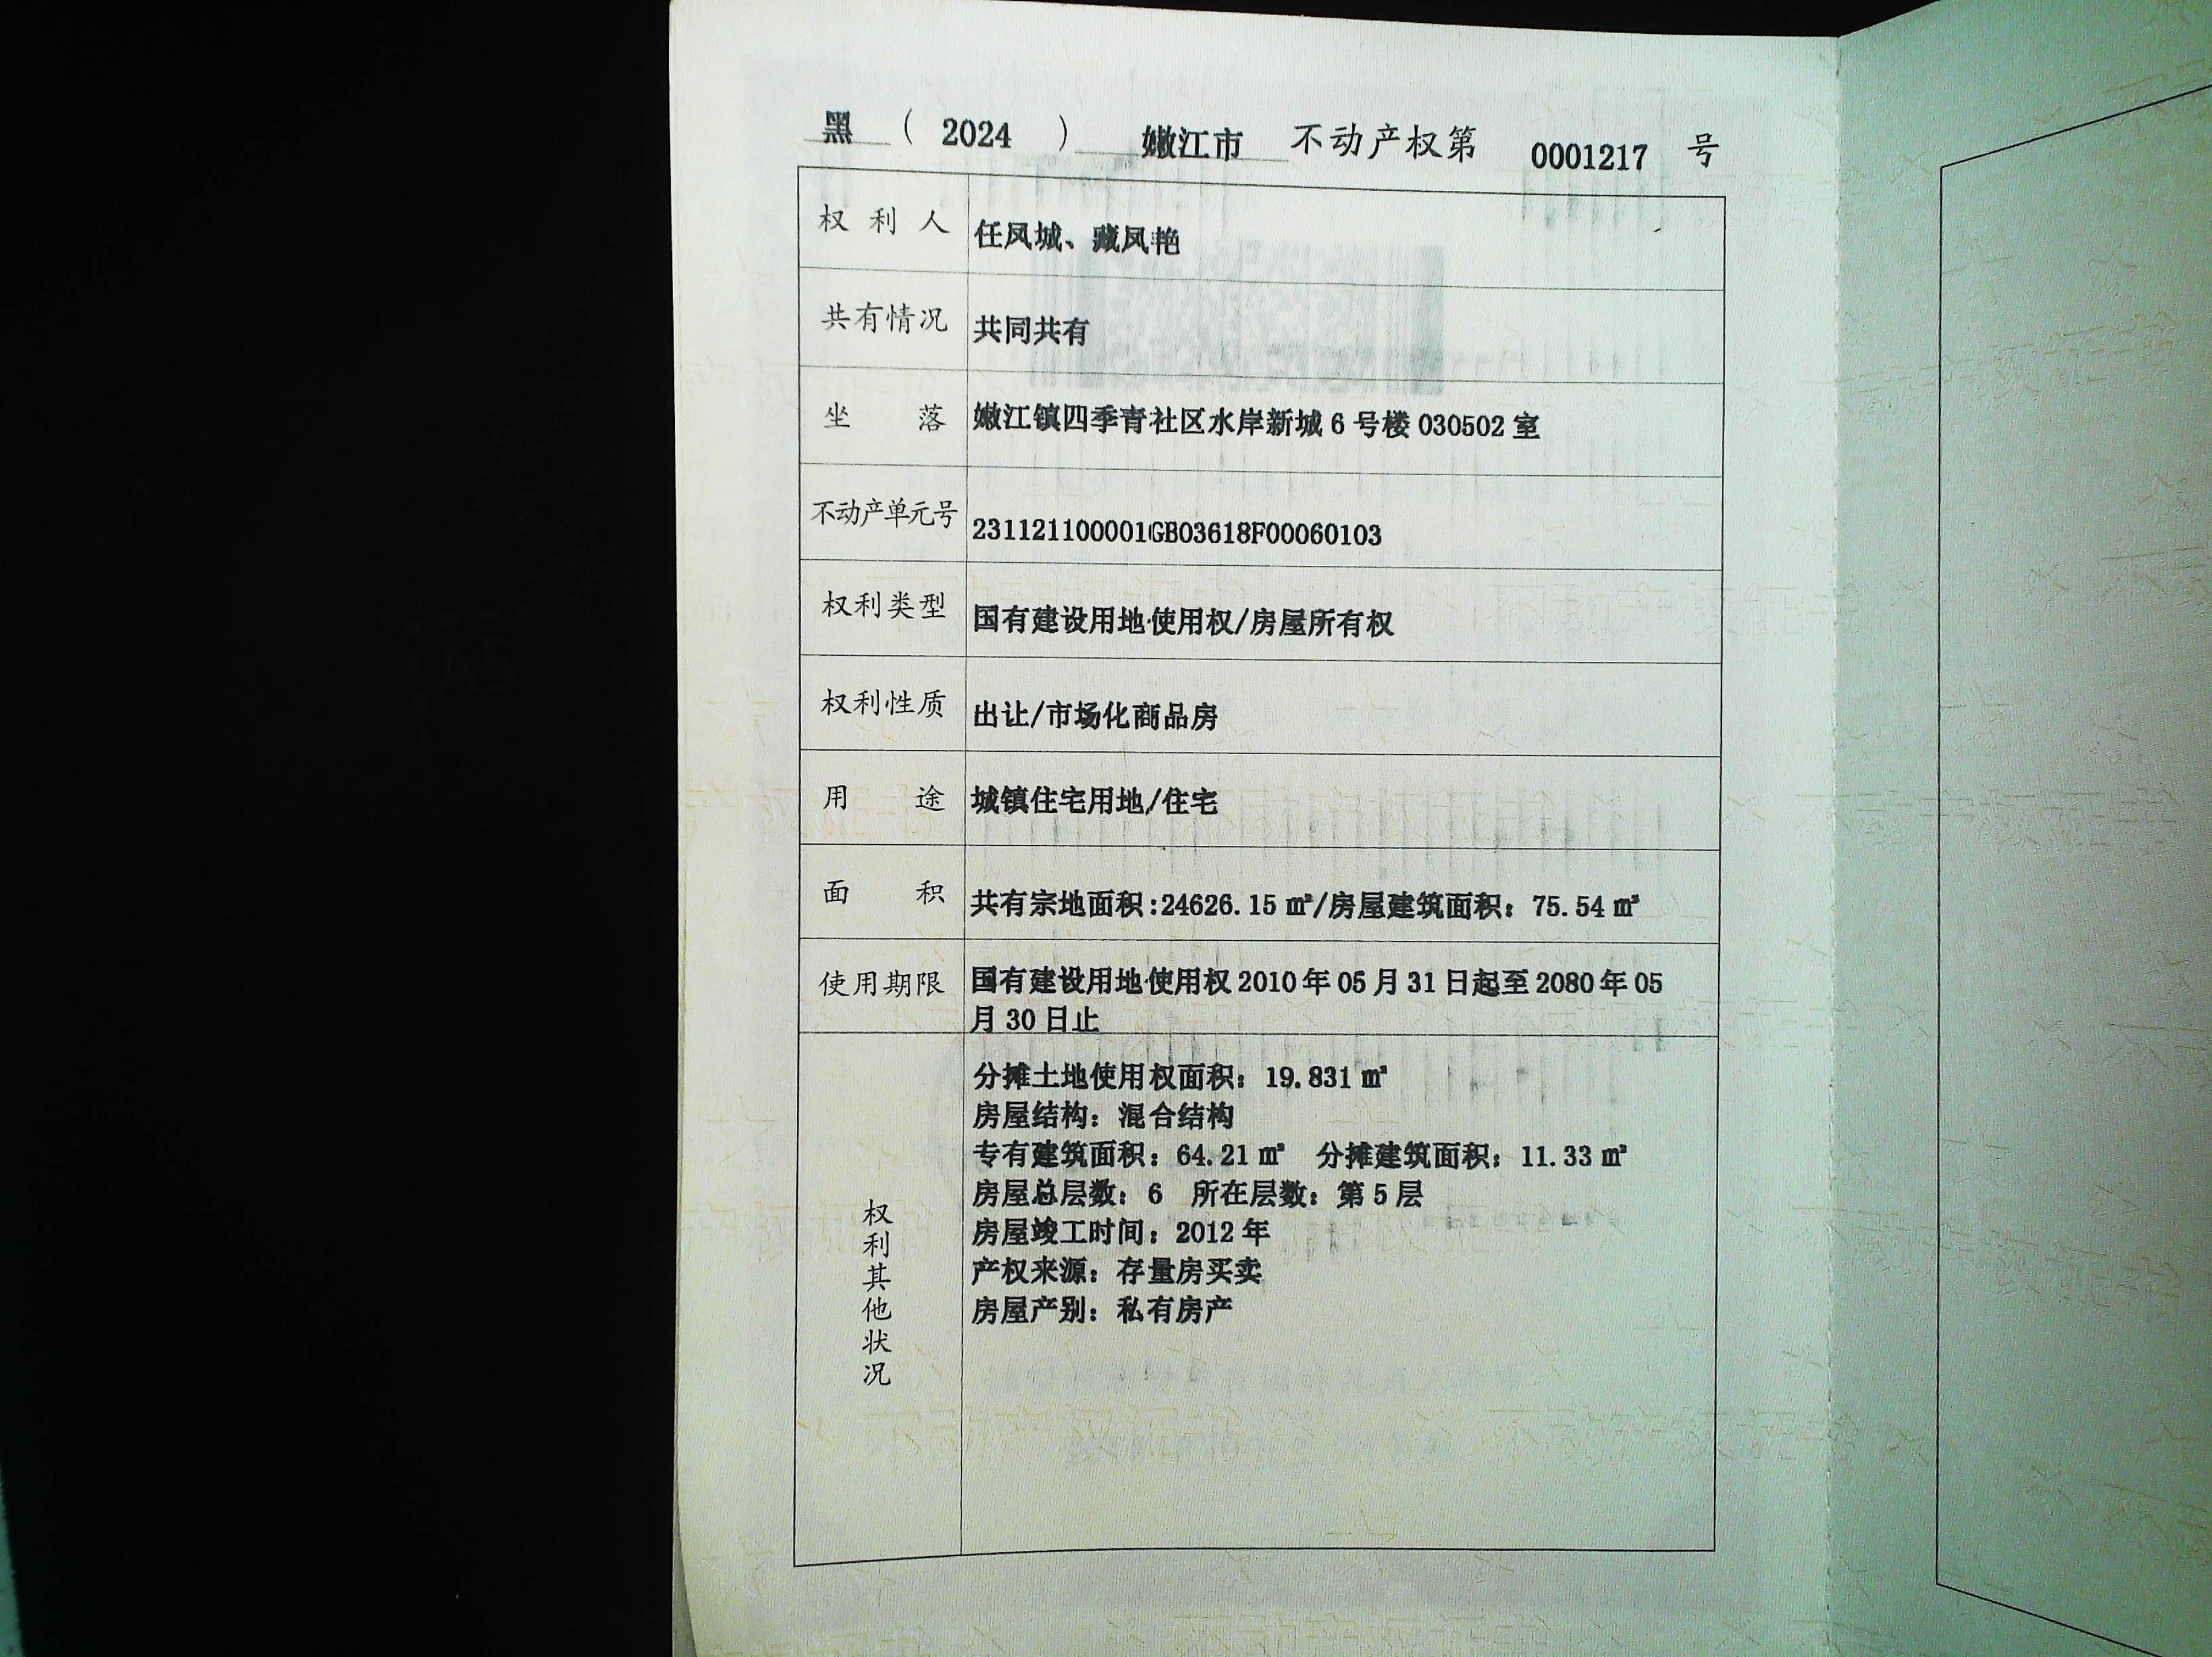 黑 ( 2024 ) 嫩江市 不动产权第 0001217 号
权利人 任凤城、藏凤艳
共有情况 共同共有
坐落 嫩江镇四季青社区水岸新城 6 号楼 030502 室
不动产单元号 231121100001GB03618F00060103
权利类型 国有建设用地使用权/房屋所有权
权利性质 出让/市场化商品房
用途 城镇住宅用地/住宅
面积 共有宗地面积:24626.15 ㎡/房屋建筑面积：75.54 ㎡
使用期限 国有建设用地使用权 2010 年 05 月 31 日起至 2080 年 05
月 30 日止
权利其他状况
分摊土地使用权面积：19.831 ㎡
房屋结构：混合结构
专有建筑面积：64.21 ㎡ 分摊建筑面积：11.33 ㎡
房屋总层数：6 所在层数：第 5 层
房屋竣工时间：2012 年
产权来源：存量房买卖
房屋产别：私有房产